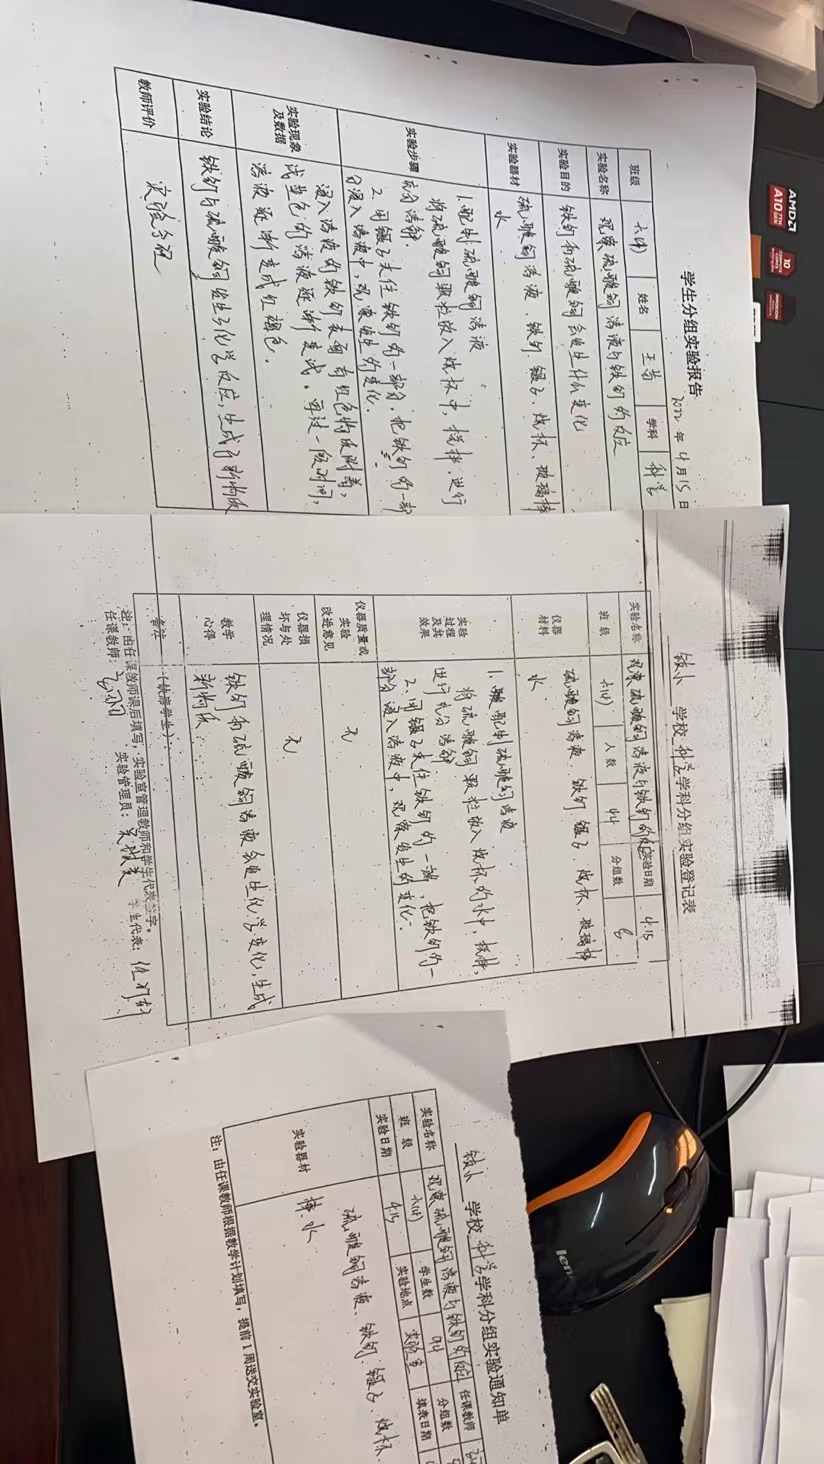 学生分组实验报告
2022年4月15日
班级 六(4) 姓名 学科 科学
实验名称 观察硫酸铜溶液与铁钉的反应
实验目的 铁钉和硫酸铜会发生什么变化
实验器材 硫酸铜溶液、铁钉、镊子、烧杯、玻璃棒
水
实验步骤
1.配制硫酸铜溶液
将硫酸铜颗粒放入烧杯中,搅拌,进行
充分溶解
2.用镊子夹住铁钉的一部分,把铁钉的一部
分浸入溶液中,观察发生的变化.
实验现象
及数据
浸入溶液的铁钉表面有红色物质附着,
浅蓝色的溶液逐渐变浅。再过一段时间,
溶液逐渐变成红褐色.
实验结论 铁钉与硫酸铜发生了化学反应,生成了新物质
教师评价
镇小 学校 科学 学科分组实验登记表
实验名称 观察硫酸铜溶液与铁钉的反应 实验日期 4.15
班级 六(4) 人数 44 分组数
仪器
材料
硫酸铜溶液 铁钉 镊子 烧杯 玻璃棒
水
实验
过程
及其
效果
1. 配制硫酸铜溶液
将硫酸铜颗粒放入烧杯的水中,搅拌,
进行充分溶解
2.用镊子夹住铁钉的一端,把铁钉的一
部分浸入溶液中,观察发生的变化.
仪器质量或
实验
改进意见
无
仪器损
坏与处
理情况
无
教学
心得
铁钉和硫酸铜溶液会发生化学变化,生成
新物质.
备注 (缺席学生):
注:由任课教师课后填写,实验室管理教师和学生代表签字。
任课教师: 实验管理员: 学生代表:
镇小 学校 科学 学科分组实验通知单
实验名称 观察硫酸铜溶液与铁钉的反应 任课教师
班级 六(4) 学生数 44 分组数
实验日期 4.15 实验地点 实验室 填表日期
实验器材
硫酸铜溶液、铁钉、镊子、烧杯、
棒、水
注:由任课教师根据教学计划填写,提前1周送交实验室。
AMD
A10
len